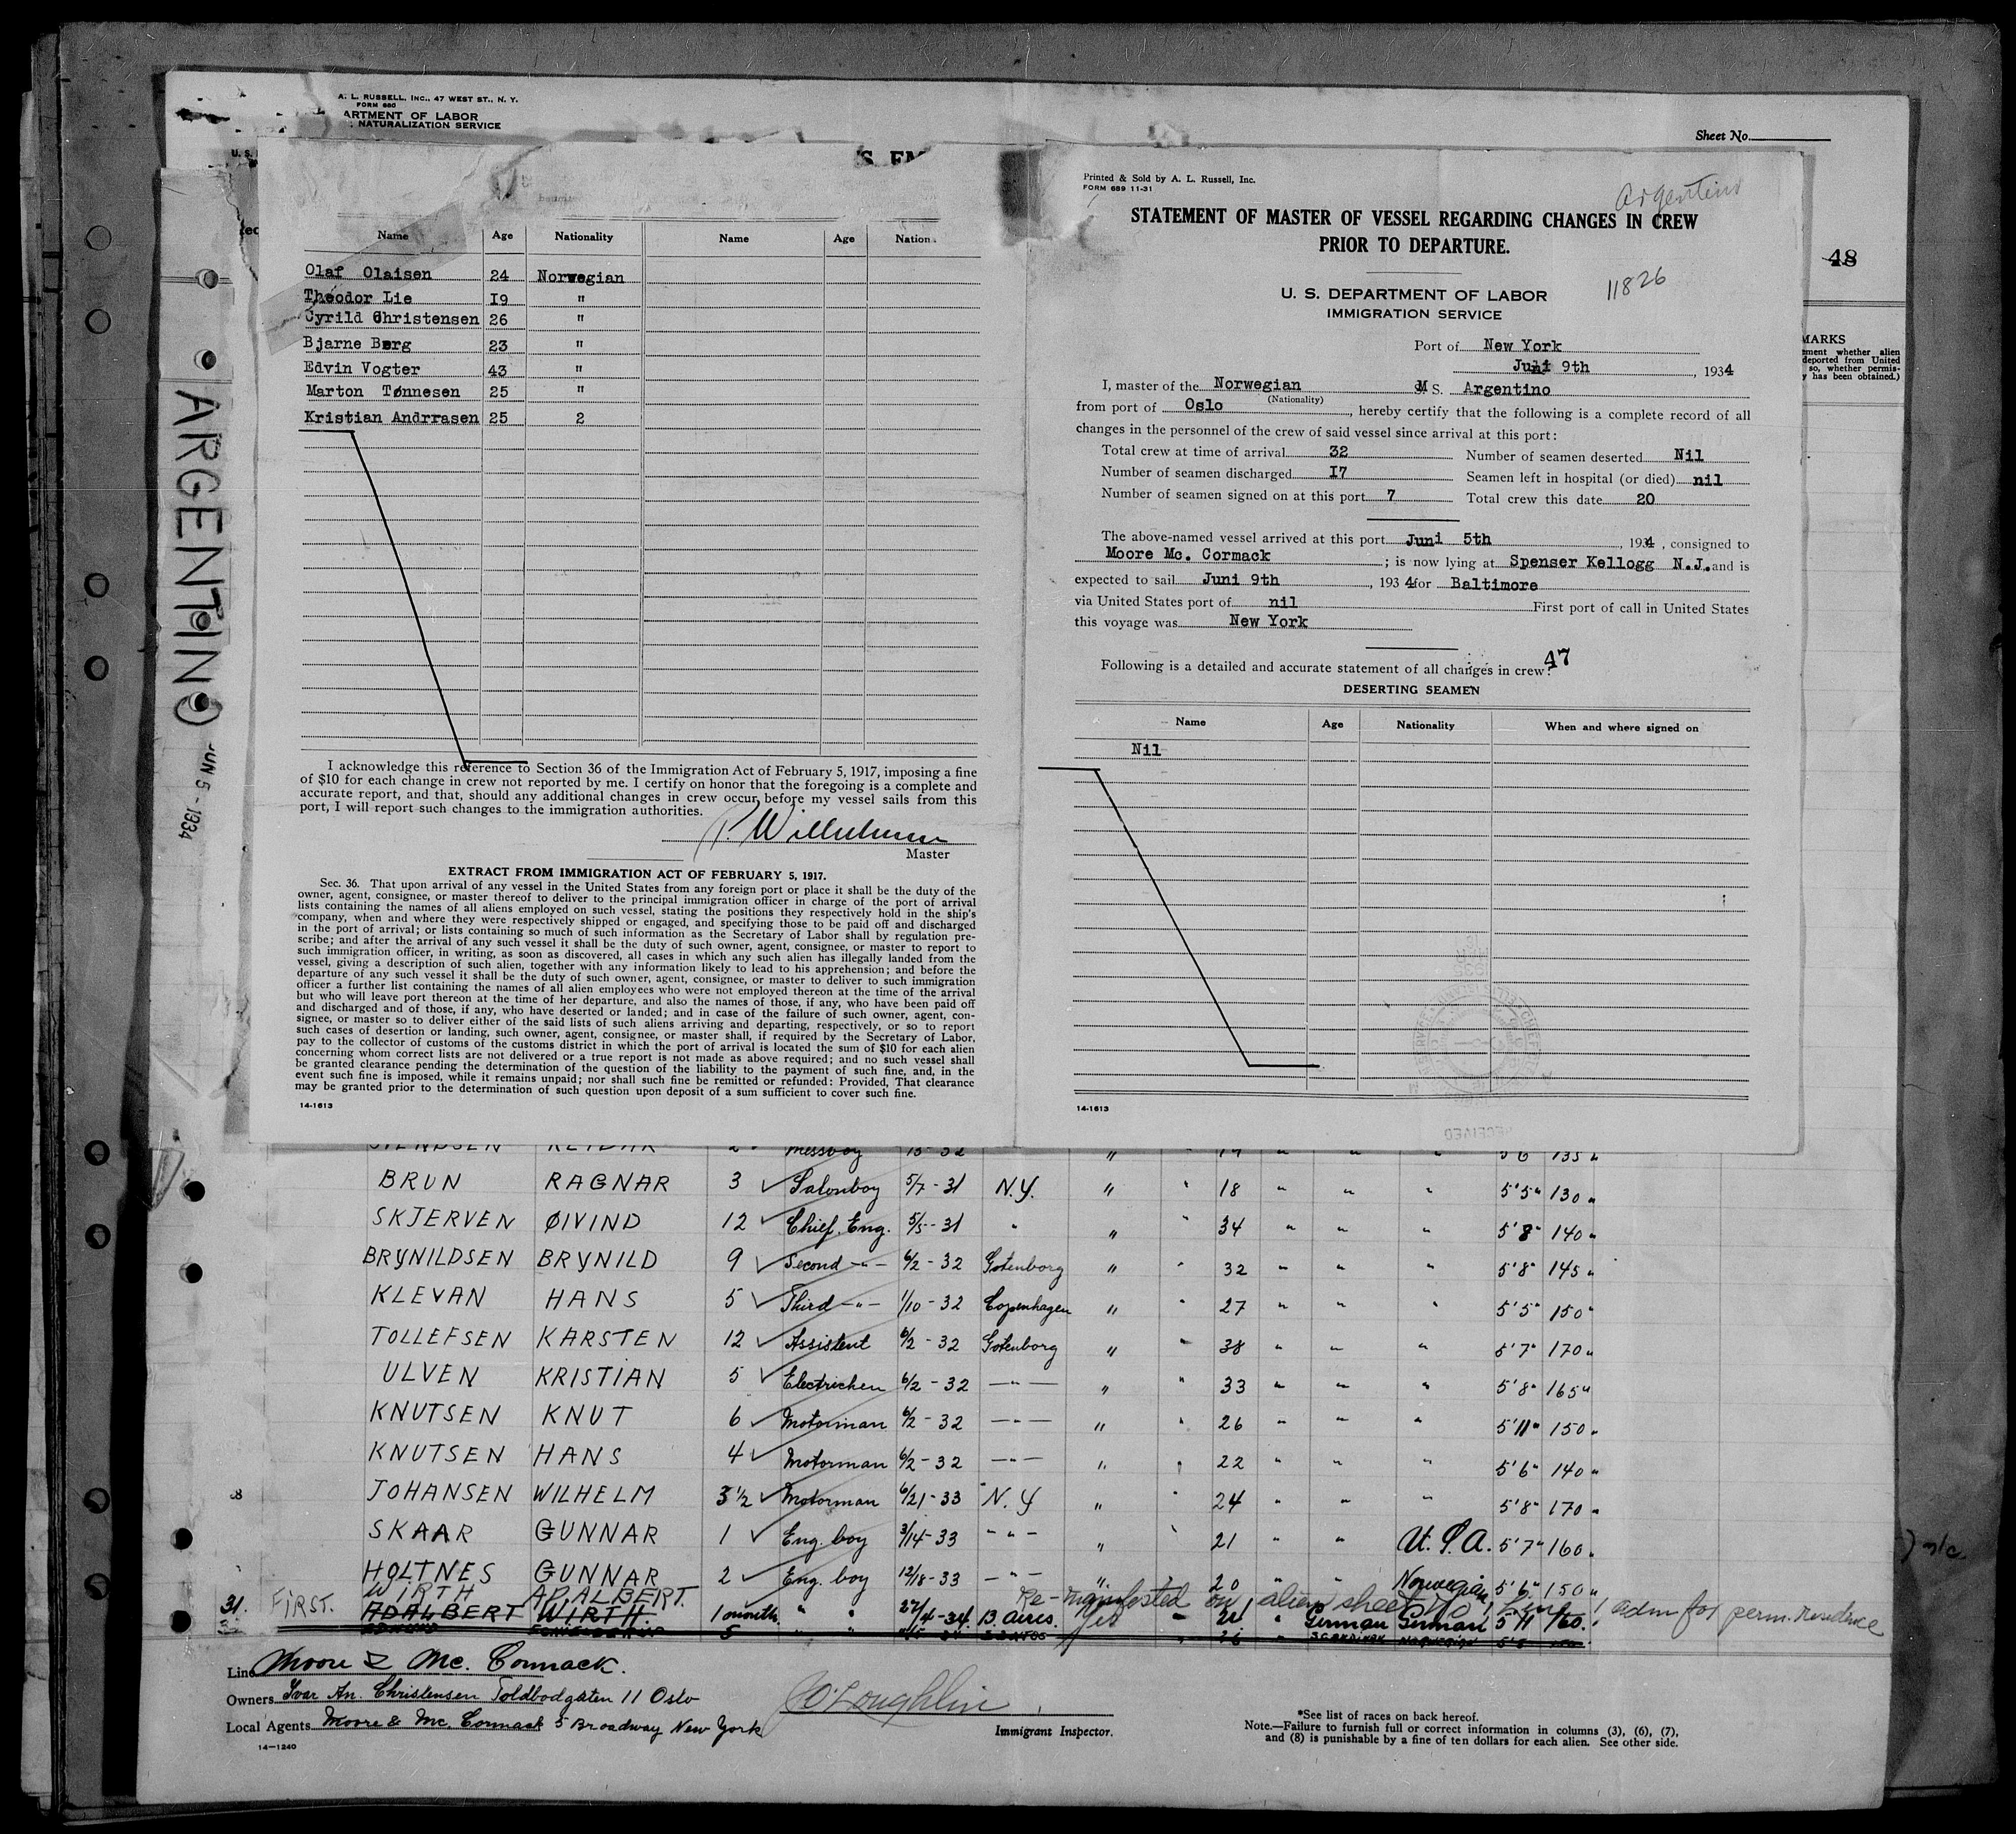 A. L. RUSSELL, INC., 47 WEST ST., N. Y.
FORM 680
ARTMENT OF LABOR
NATURALIZATION SERVICE
U. S.
Sheet No.
48
MARKS
ment whether alien
deported from United
so, whether permis-
y has been obtained.)
ARGENTINO
JUN 5 - 1934
Name Age Nationality Name Age Nation
Olaf Olaisen 24 Norwegian
Theodor Lie 19 "
Cyrild Christensen 26 "
Bjarne Berg 23 "
Edvin Vogter 43 "
Marton Tønnesen 25 "
Kristian Andrrasen 25 2
I acknowledge this reference to Section 36 of the Immigration Act of February 5, 1917, imposing a fine
of $10 for each change in crew not reported by me. I certify on honor that the foregoing is a complete and
accurate report, and that, should any additional changes in crew occur before my vessel sails from this
port, I will report such changes to the immigration authorities.
Master
EXTRACT FROM IMMIGRATION ACT OF FEBRUARY 5, 1917.
Sec. 36. That upon arrival of any vessel in the United States from any foreign port or place it shall be the duty of the
owner, agent, consignee, or master thereof to deliver to the principal immigration officer in charge of the port of arrival
lists containing the names of all aliens employed on such vessel, stating the positions they respectively hold in the ship's
company, when and where they were respectively shipped or engaged, and specifying those to be paid off and discharged
in the port of arrival; or lists containing so much of such information as the Secretary of Labor shall by regulation pre-
scribe; and after the arrival of any such vessel it shall be the duty of such owner, agent, consignee, or master to report to
such immigration officer, in writing, as soon as discovered, all cases in which any such alien has illegally landed from the
vessel, giving a description of such alien, together with any information likely to lead to his apprehension; and before the
departure of any such vessel it shall be the duty of such owner, agent, consignee, or master to deliver to such immigration
officer a further list containing the names of all alien employees who were not employed thereon at the time of the arrival
but who will leave port thereon at the time of her departure, and also the names of those, if any, who have been paid off
and discharged and of those, if any, who have deserted or landed; and in case of the failure of such owner, agent, con-
signee, or master so to deliver either of the said lists of such aliens arriving and departing, respectively, or so to report
such cases of desertion or landing, such owner, agent, consignee, or master shall, if required by the Secretary of Labor,
pay to the collector of customs of the customs district in which the port of arrival is located the sum of $10 for each alien
concerning whom correct lists are not delivered or a true report is not made as above required; and no such vessel shall
be granted clearance pending the determination of the question of the liability to the payment of such fine, and, in the
event such fine is imposed, while it remains unpaid; nor shall such fine be remitted or refunded: Provided, That clearance
may be granted prior to the determination of such question upon deposit of a sum sufficient to cover such fine.
14-1613
Printed & Sold by A. L. Russell, Inc.
FORM 689 11-31
Argentino
STATEMENT OF MASTER OF VESSEL REGARDING CHANGES IN CREW
PRIOR TO DEPARTURE.
11826
U. S. DEPARTMENT OF LABOR
IMMIGRATION SERVICE
Port of New York
Juni 9th, 1934
I, master of the Norwegian M S. Argentino
(Nationality)
from port of Oslo, hereby certify that the following is a complete record of all
changes in the personnel of the crew of said vessel since arrival at this port:
Total crew at time of arrival 32 Number of seamen deserted Nil
Number of seamen discharged 17 Seamen left in hospital (or died) nil
Number of seamen signed on at this port 7 Total crew this date 20
The above-named vessel arrived at this port Juni 5th, 1934, consigned to
Moore Mc. Cormack; is now lying at Spenser Kellogg N.J. and is
expected to sail Juni 9th, 1934 for Baltimore
via United States port of nil First port of call in United States
this voyage was New York
Following is a detailed and accurate statement of all changes in crew: 47
DESERTING SEAMEN
Name Age Nationality When and where signed on
Nil
14-1613
Messboy 19 " 5'6" 135 "
BRUN RAGNAR 3 ✓ Salonboy 5/7-31 N.Y. " " 18 " " " 5'5" 130 "
SKJERVEN ØIVIND 12 ✓ Chief. Eng. 5/5-31 " " " 34 " " " 5'8" 140 "
BRYNILDSEN BRYNILD 9 ✓ Second -"- 6/2-32 Gotenborg " " 32 " " " 5'8" 145 "
KLEVAN HANS 5 ✓ Third -"- 1/10-32 Copenhagen " " 27 " " " 5'5" 150 "
TOLLEFSEN KARSTEN 12 ✓ Assistent 6/2-32 Gotenborg " " 38 " " " 5'7" 170 "
ULVEN KRISTIAN 5 ✓ Electriken 6/2-32 -"- " " 33 " " " 5'8" 165 "
KNUTSEN KNUT 6 ✓ Motorman 6/2-32 -"- " " 26 " " " 5'11" 150 "
KNUTSEN HANS 4 ✓ Motorman 6/2-32 -"- " " 22 " " " 5'6" 140 "
JOHANSEN WILHELM 3 1/2 ✓ Motorman 6/21-33 N.Y " " 24 " " " 5'8" 170 "
SKAAR GUNNAR 1 ✓ Eng. boy 3/14-33 -"- " " 21 " " U.S.A. 5'7" 160 "
HOLTNES GUNNAR 2 ✓ Eng. boy 12/18-33 -"- " " 20 " " Norwegian 5'6" 150 "
WIRTH ADALBERT. Re-manifested on alien sheet No 1 adm for perm. residence
31. FIRST. ADALBERT WIRTH. 1 month " " 27/4-34. B aires. Yes " 22 " German German 5 11 160.
Line Moore & Mc. Cormack.
Owners Ivar An. Christensen Toldbodgaten 11 Oslo
Local Agents Moore & Mc. Cormack 5 Broadway New York
14-1240
O'Loughlin
Immigrant Inspector.
*See list of races on back hereof.
Note.—Failure to furnish full or correct information in columns (3), (6), (7),
and (8) is punishable by a fine of ten dollars for each alien. See other side.